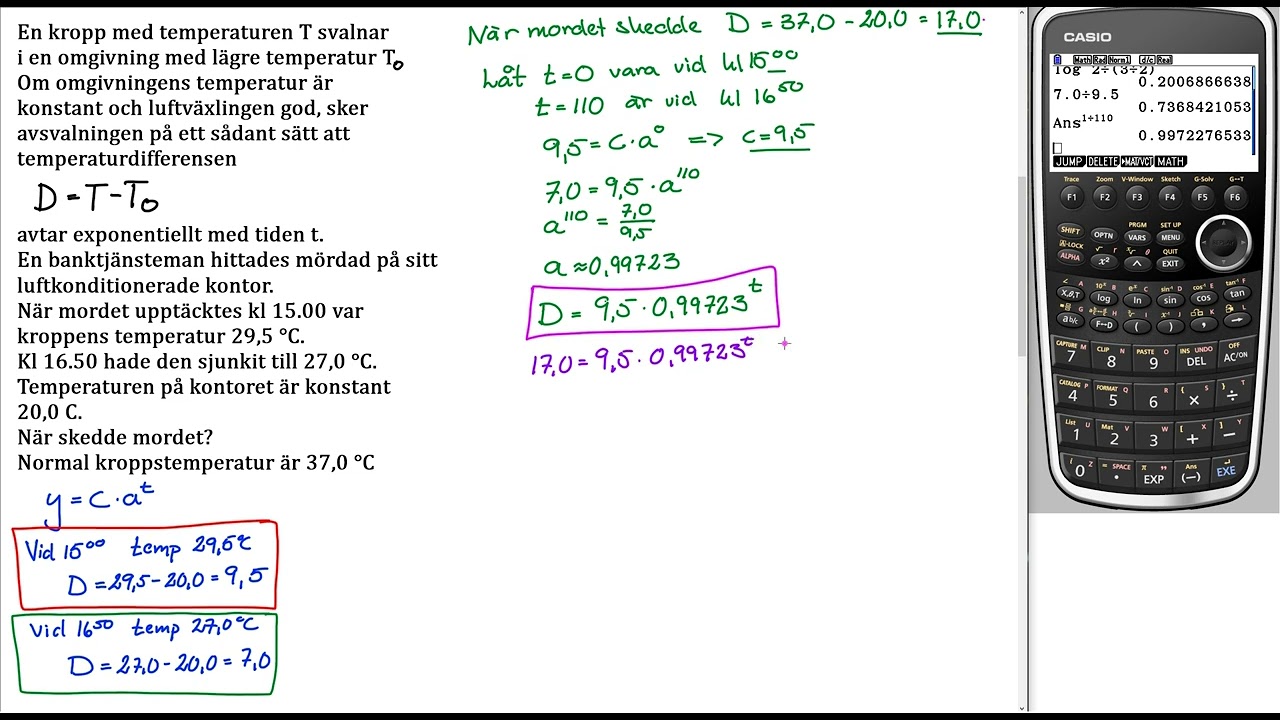 En kropp med temperaturen T svalnar
i en omgivning med lägre temperatur T₀
Om omgivningens temperatur är
konstant och luftväxlingen god, sker
avsvalningen på ett sådant sätt att
temperaturdifferensen
D = T - T₀
avtar exponentiellt med tiden t.
En banktjänsteman hittades mördad på sitt
luftkonditionerade kontor.
När mordet upptäcktes kl 15.00 var
kroppens temperatur 29,5 °C.
Kl 16.50 hade den sjunkit till 27,0 °C.
Temperaturen på kontoret är konstant
20,0 C.
När skedde mordet?
Normal kroppstemperatur är 37,0 °C
y = C·aᵗ
Vid 15⁰⁰ temp 29,5°C
D = 29,5 - 20,0 = 9,5
Vid 16⁵⁰ temp 27,0°C
D = 27,0 - 20,0 = 7,0
När mordet skedde D = 37,0 - 20,0 = 17,0.
Låt t=0 vara vid kl 15⁰⁰
t=110 är vid kl 16⁵⁰
9,5 = C·a⁰ => C=9,5
7,0 = 9,5·a¹¹⁰
a¹¹⁰ = 7,0/9,5
a ≈ 0,99723
D = 9,5·0,99723ᵗ
17,0 = 9,5·0,99723ᵗ
CASIO
Math Rad Norm1 d/c Real
log 2÷(3÷2)
0.2006866638
7.0÷9.5
0.7368421053
Ans^1÷110
0.9972276533
JUMP DELETE ►MAT/VCT MATH
Trace Zoom V-Window Sketch G-Solv G↔T
F1 F2 F3 F4 F5 F6
PRGM SET UP
SHIFT OPTN VARS MENU
A-LOCK QUIT
ALPHA x² ^ EXIT
X,θ,T log ln sin cos tan
a b/c F↔D ( ) , →
CAPTURE M CLIP N PASTE O INS UNDO OFF
7 8 9 DEL AC/ON
CATALOG P FORMAT Q R S T
4 5 6 × ÷
List U Mat V W X Y
1 2 3 + −
Z SPACE π " Ans
0 . EXP (−) EXE